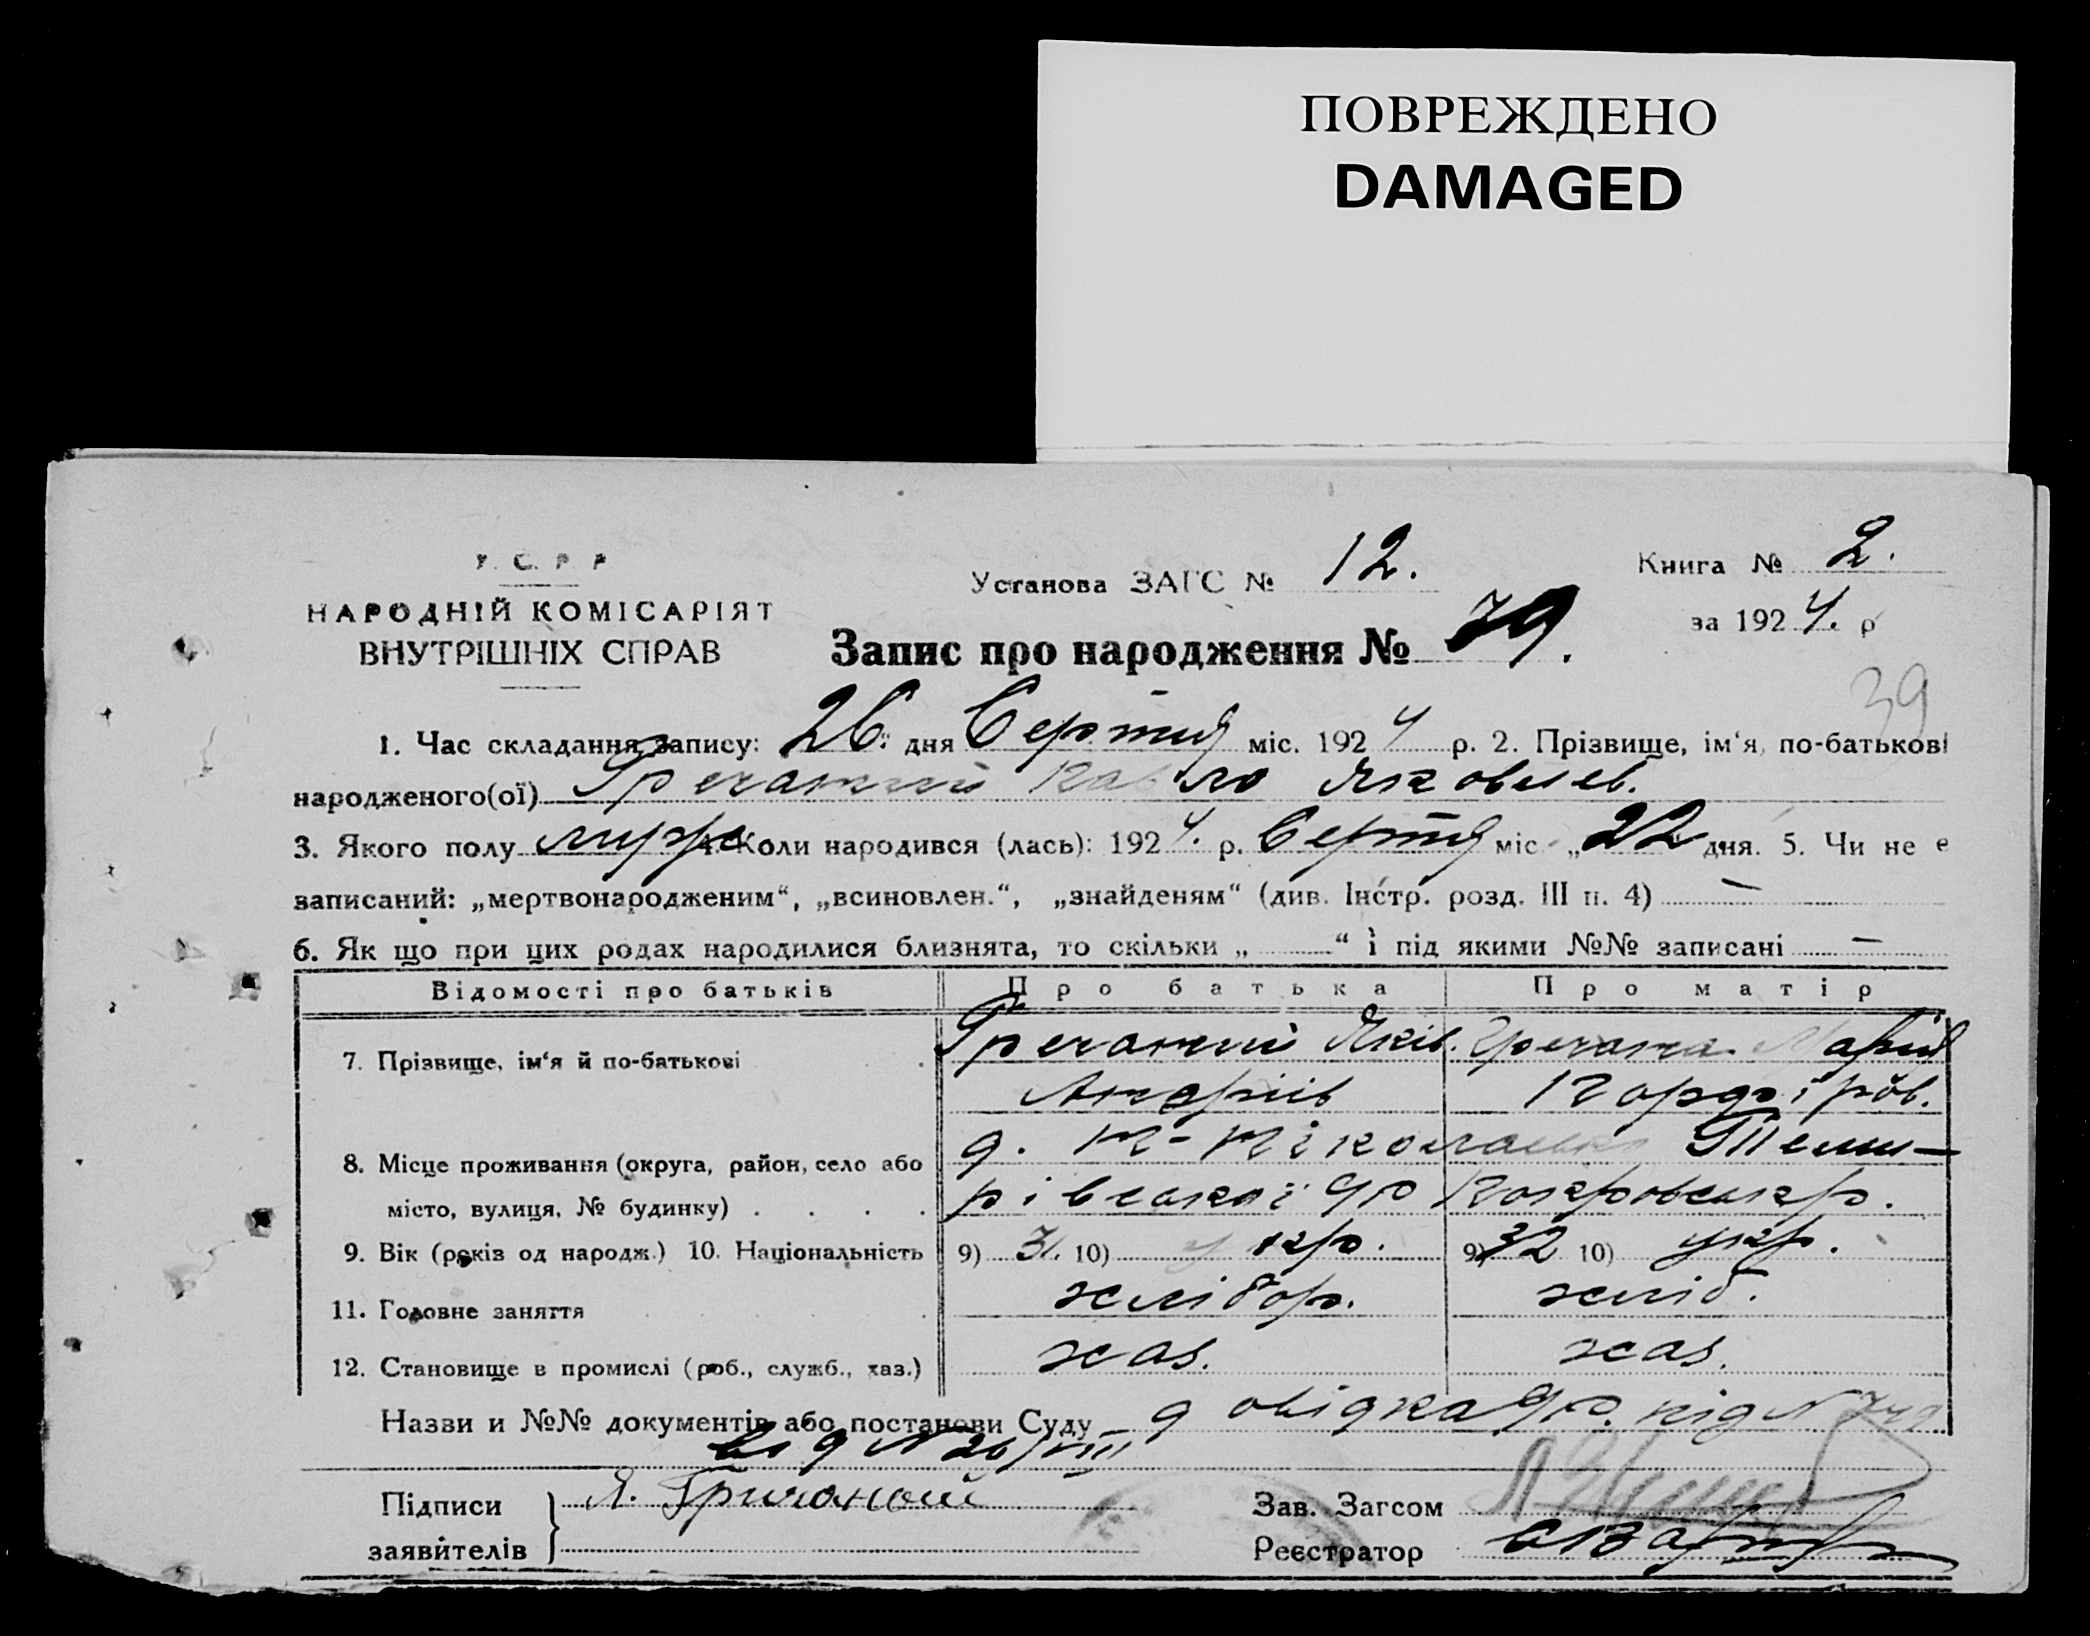 ПОВРЕЖДЕНО
DAMAGED
У. С. Р. Р
НАРОДНІЙ КОМІСАРІЯТ
ВНУТРІШНІХ СПРАВ
Установа ЗАГС № 12.
Книга № 2.
за 1924. р
Запис про народження № 79.
39
1. Час складання запису: 26 дня Серпня міс. 1924 р. 2. Прізвище, ім‘я, по-батькові
народженого(ої) Гречаний Павло Яковлев.
3. Якого полу 4. Коли народився (лась): 1924. р. Серпня міс „22 дня. 5. Чи не є
записаний: „мертвонародженим“, „всиновлен.“, „знайденям“ (див. Інстр. розд. III п. 4) —
6. Як що при цих родах народилися близнята, то скільки „ “ і під якими №№ записані —
Відомості про батьків Про батька Про матір
7. Прізвище, ім‘я й по-батькові Гречаний Яків. Гречана Марія
Андріїв
8. Місце проживання (округа, район, село або
місто, вулиця, № будинку) . . . . Покровськ
9. Вік (років од народж.) 10. Національність 9) 31. 10) укр. 9) 32 10) укр.
11. Головне заняття хлібор. хліб.
12. Становище в промислі (роб., служб., хаз.) хаз. хаз.
Назви и №№ документів або постанови Суду довідка
Підписи Я. Гричаной Зав. Загсом
заявителів Реєстратор